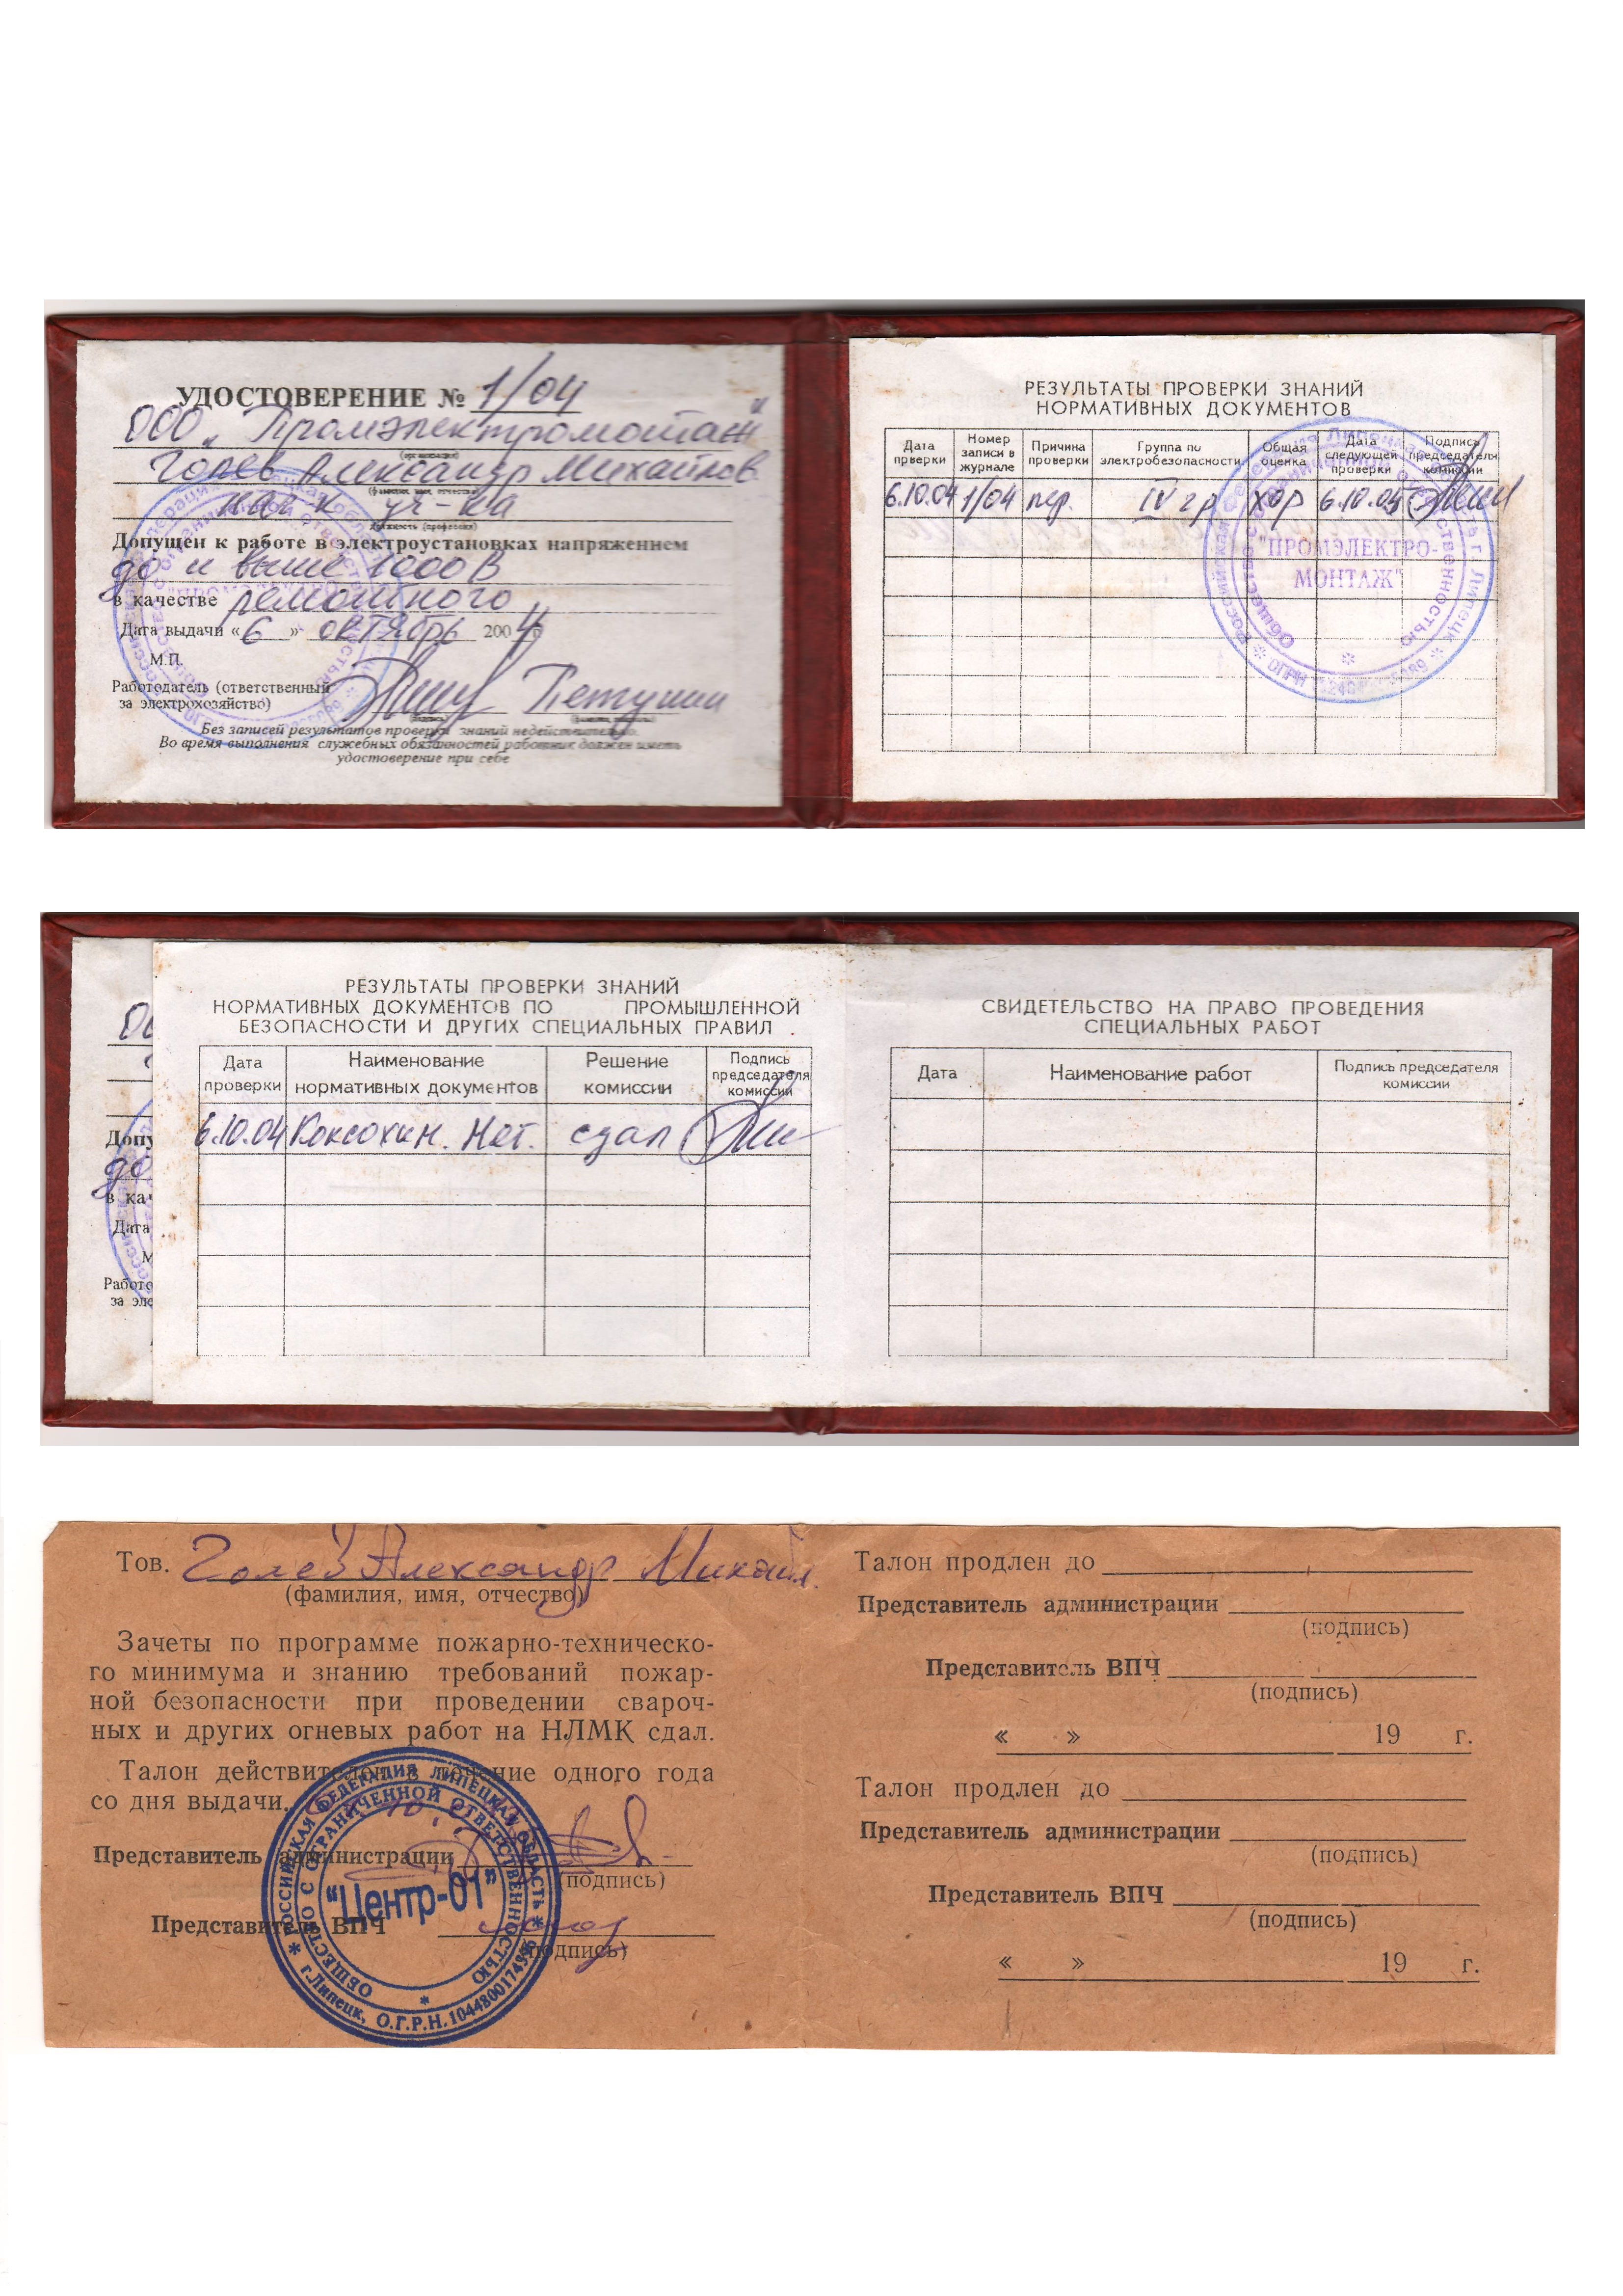 УДОСТОВЕРЕНИЕ № 1/04
ООО „Промэлектромонтаж"
(организация)
Голев Александр Михайлов
(фамилия, имя, отчество)
нач-к уч-ка
должность (профессия)
Допущен к работе в электроустановках напряжением
до и выше 1000 В
в качестве ремонтного
Дата выдачи « 6 » октябрь 2004 г
М.П.
Работодатель (ответственный
за электрохозяйство)
Петушин
Без записей результатов проверки знаний недействительно.
Во время выполнения служебных обязанностей работник должен иметь
удостоверение при себе
РЕЗУЛЬТАТЫ ПРОВЕРКИ ЗНАНИЙ
НОРМАТИВНЫХ ДОКУМЕНТОВ
Дата прверки
Номер записи в журнале
Причина проверки
Группа по электробезопасности
Общая оценка
Дата следующей проверки
Подпись председателя комиссии
6.10.04 1/04 пер. IV гр хор 6.10.05
"ПРОМЭЛЕКТРО-
МОНТАЖ"
РЕЗУЛЬТАТЫ ПРОВЕРКИ ЗНАНИЙ
НОРМАТИВНЫХ ДОКУМЕНТОВ ПО ПРОМЫШЛЕННОЙ
БЕЗОПАСНОСТИ И ДРУГИХ СПЕЦИАЛЬНЫХ ПРАВИЛ
Дата проверки
Наименование нормативных документов
Решение комиссии
Подпись председателя комиссии
6.10.04 Коксохим. сдал
СВИДЕТЕЛЬСТВО НА ПРАВО ПРОВЕДЕНИЯ
СПЕЦИАЛЬНЫХ РАБОТ
Дата
Наименование работ
Подпись председателя комиссии
Допу
до
в кач
Дата
М
Работо
за эле
Тов. Голев Александр Михайл.
(фамилия, имя, отчество)
Зачеты по программе пожарно-техническо-
го минимума и знанию требований пожар-
ной безопасности при проведении свароч-
ных и других огневых работ на НЛМК сдал.
Талон действителен в течение одного года
со дня выдачи.
Представитель администрации
(подпись)
Представитель ВПЧ
(подпись)
* РОССИЙСКАЯ ФЕДЕРАЦИЯ ЛИПЕЦКАЯ ОБЛАСТЬ *
ОБЩЕСТВО С ОГРАНИЧЕННОЙ ОТВЕТСТВЕННОСТЬЮ
"Центр-01"
г.Липецк, О.Г.Р.Н. 1044800174996
Талон продлен до
Представитель администрации
(подпись)
Представитель ВПЧ
(подпись)
« » 19 г.
Талон продлен до
Представитель администрации
(подпись)
Представитель ВПЧ
(подпись)
« » 19 г.